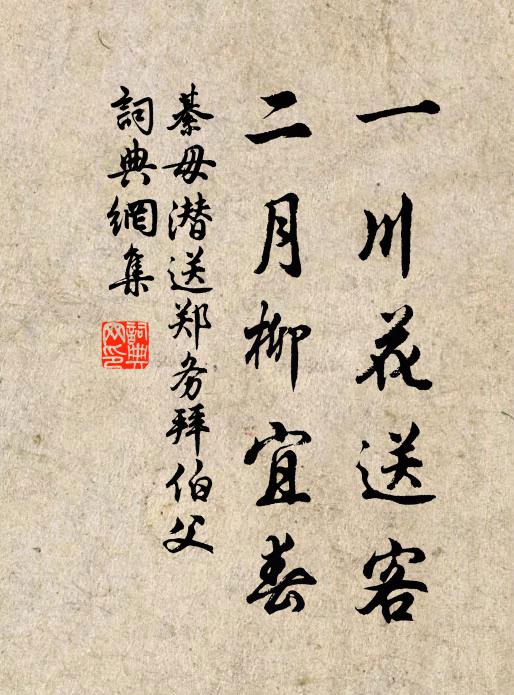 一川花送客
二月柳宜春
綦毋潜送郑务拜伯父
詞典網集
詞典网印